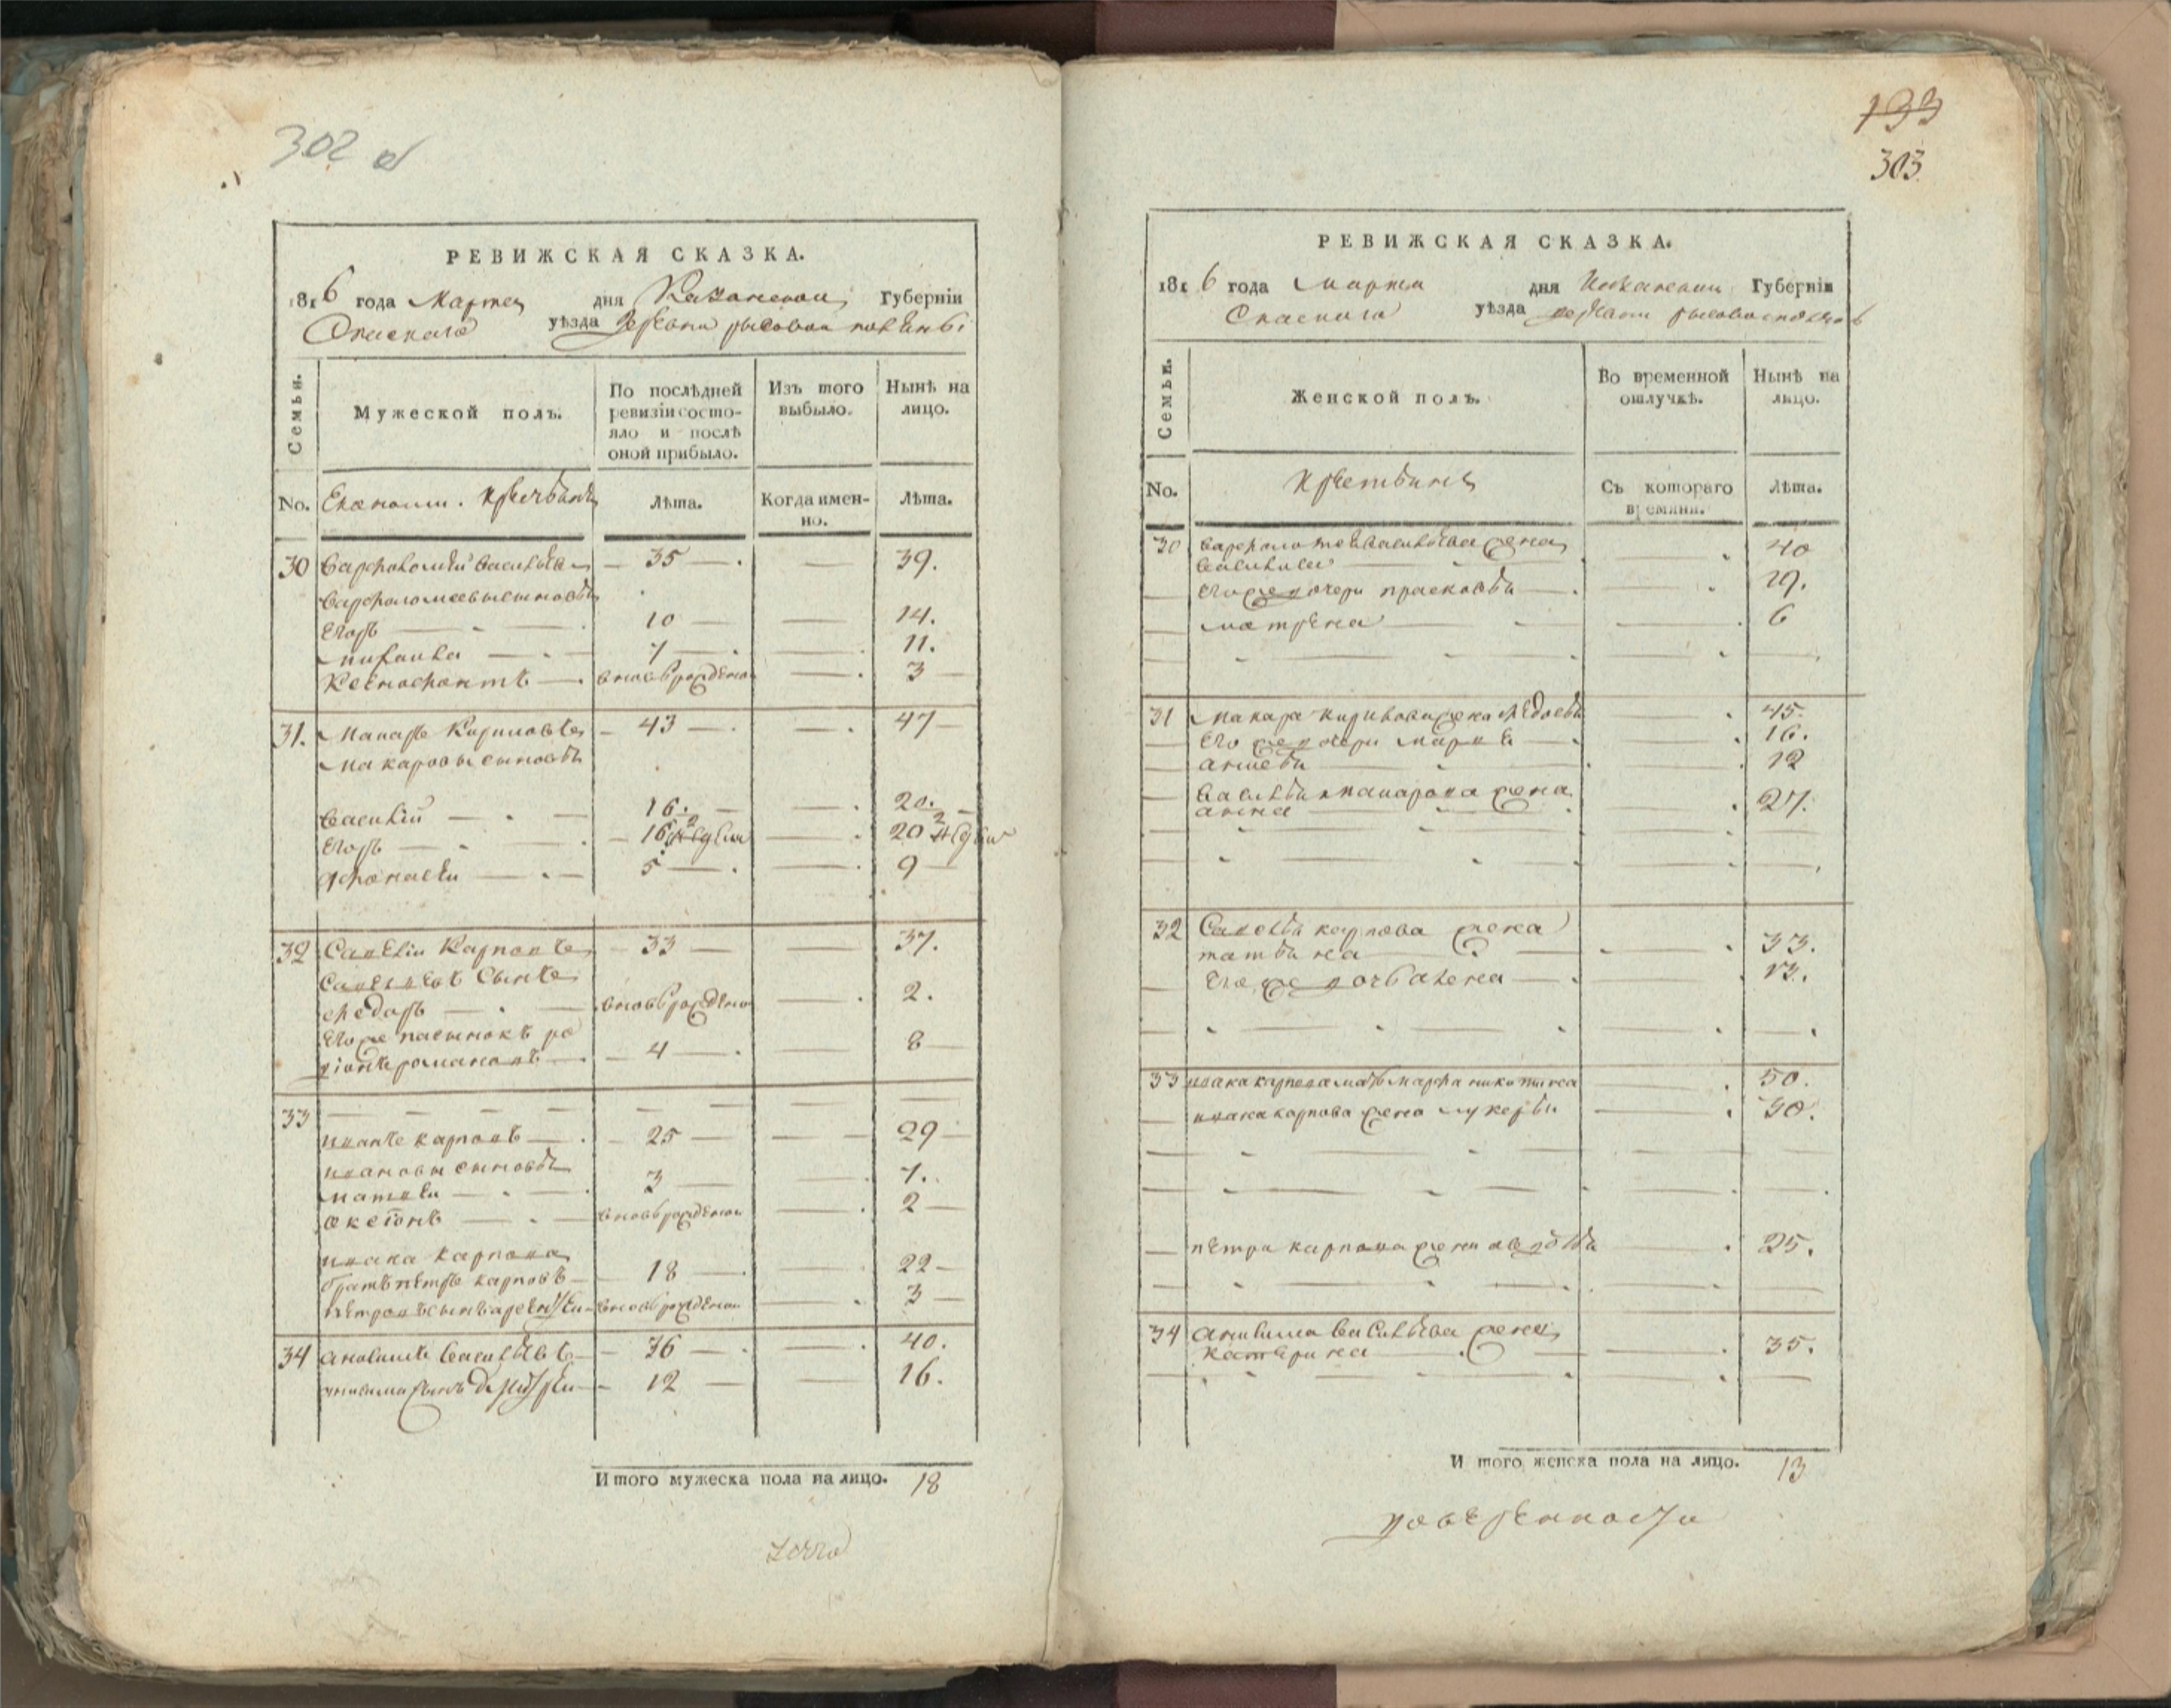 302 об
РЕВИЖСКАЯ СКАЗКА.
1816 года Марта дня Казанской Губерніи
Спаскаго уѣзда деревни рысовой поляны
Семьи. Мужеской полъ. По послѣдней ревизіи состояло и послѣ оной прибыло. Изъ того выбыло. Нынѣ на лицо.
No. Економи. крестьянъ Лѣта. Когда именно. Лѣта.
30 Варфоломѣй Васильевъ — 35 — — 39.
Варфоломеевы сыновья
Егоръ — 10 — — 14.
михаила — 7 — — 11.
Ксенофонтъ — вновь рожденой — 3
31. Макаръ Кириловъ — 43 — — 47
макаровы сыновья
василій — 16. — 20.
Егоръ — 16 2 — 20 2
Афонасѣи — 5 — — 9
32 Савѣліи Карповъ — 33 — — 37.
Савельевъ сынъ
ѳедоръ — вновь рожденой — 2.
Его же пасынокъ ро
діонъ романовъ — 4 — — 8
33
иванъ карповъ — 25 — — 29
ивановы сыновья
матвѣи — 3 — — 7.
аксіонъ — вновь рожденои — 2
ивана карпова
братъ пѣтръ карповъ — 18 — — 22
пѣтровъ сынъ арсѣнтѣи вновь рожденои — 3
34 анисимъ васильѣвъ — 36 — — 40.
анисима сынъ дмитрѣи — 12 — — 16.
Итого мужеска пола на лицо. 18
193
303
РЕВИЖСКАЯ СКАЗКА.
1816 года марта дня казанскои Губерніи
Спаскаго уѣзда деревни рысовой поляны
Семьи. Женской полъ. Во временной отлучкѣ. Нынѣ на лицо.
No. крестьянъ Съ котораго времяни. Лѣта.
30 варфоломея васильева жена
василиса — 40
Его же дочери прасковья — 19.
матрена — 6
31 макара кирилова жена ѳедосья — 45.
Его же дочери марья — 16.
анисья — 12
василья макарова жена
анна — 27.
32 Савелья карпова жена
татьяна — 33.
Его же дочь алена — 13.
33 ивана карпова мать марфа никитина — 50.
ивана карпова жена лукерья — 30.
пѣтра карпова жена авдотья — 25.
34 анисима васильева жена
катерина — 35.
И того женска пола на лицо. 13